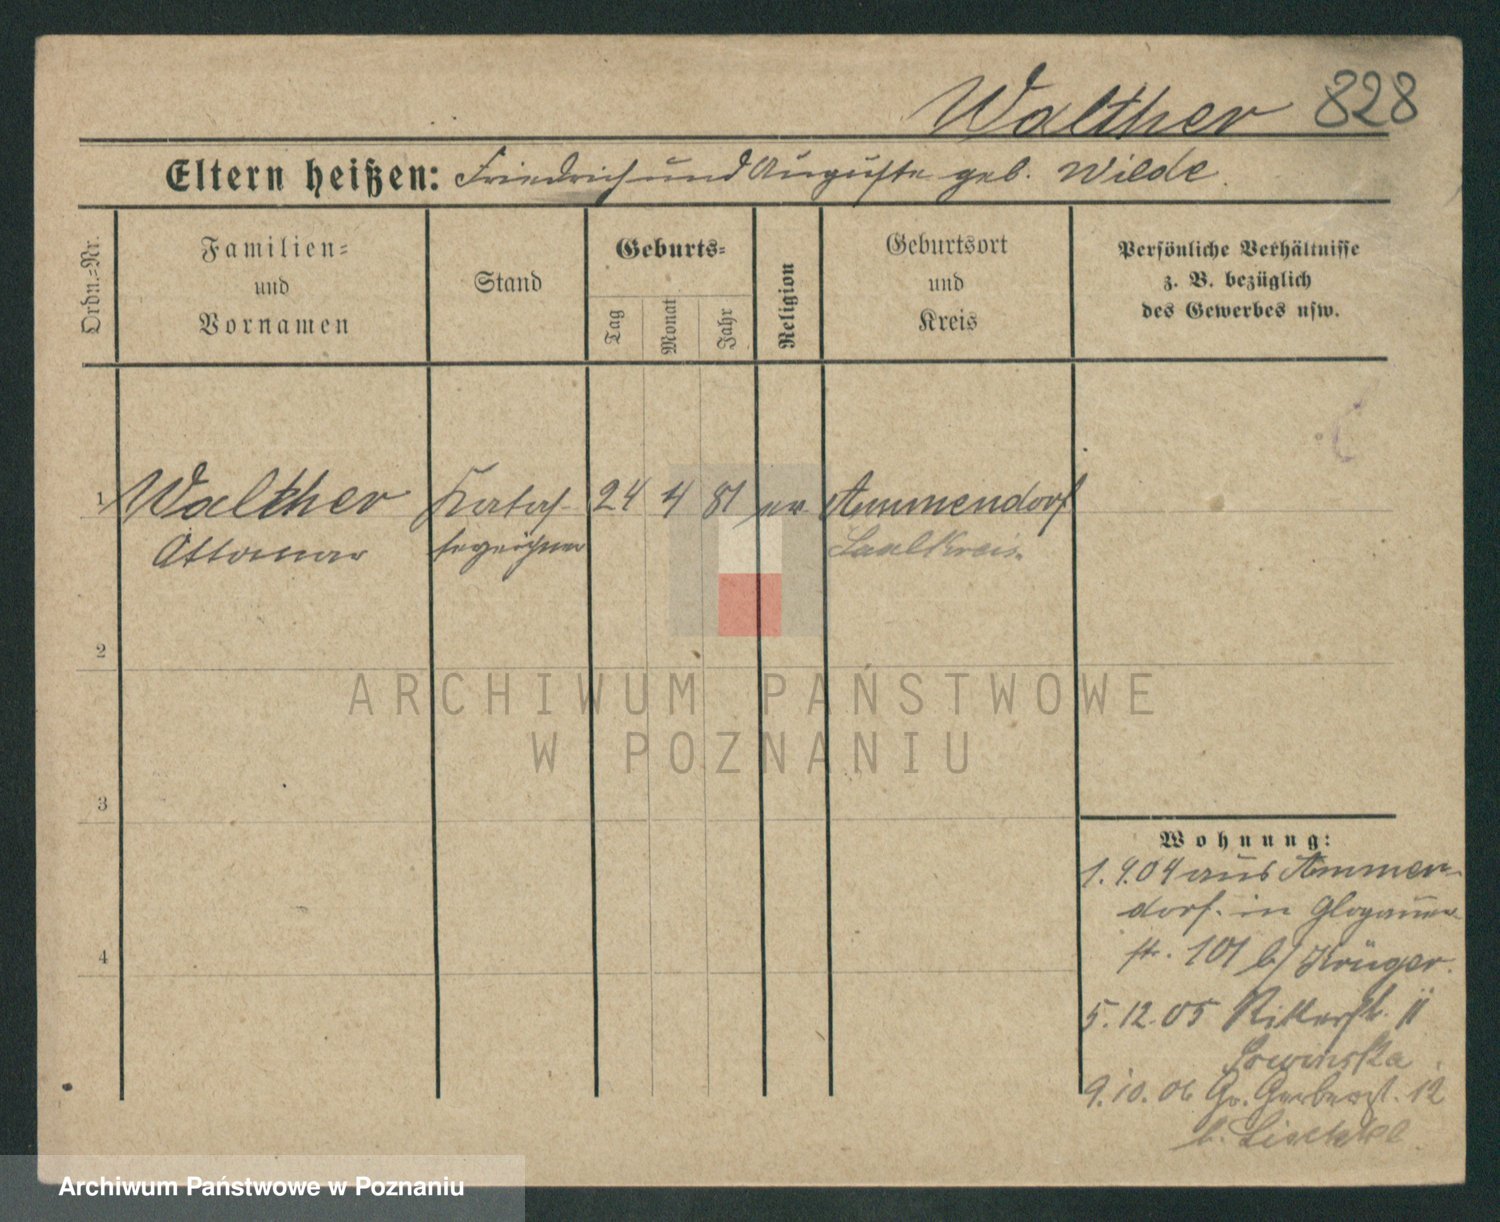 Walther 828
Eltern heißen: Friedrich und Auguste geb. Wilde.
Ordn.=Nr.
Familien=
und
Vornamen
Stand
Geburts=
Tag
Monat
Jahr
Religion
Geburtsort
und
Kreis
Persönliche Verhältnisse
z. B. bezüglich
des Gewerbes usw.
1 Walther Katas- 24 4 81 ev Ammendorf
Ottomar terzeichner Saalkreis.
2
3
4
Wohnung:
1.4.04 aus Ammen-
dorf. in Glogauer
str. 101 b/ Krüger.
5.12.05 Ritterstr. 11
9.10.06 Gr. Gerberst. 12
b.
ARCHIWUM PAŃSTWOWE
W POZNANIU
Archiwum Państwowe w Poznaniu